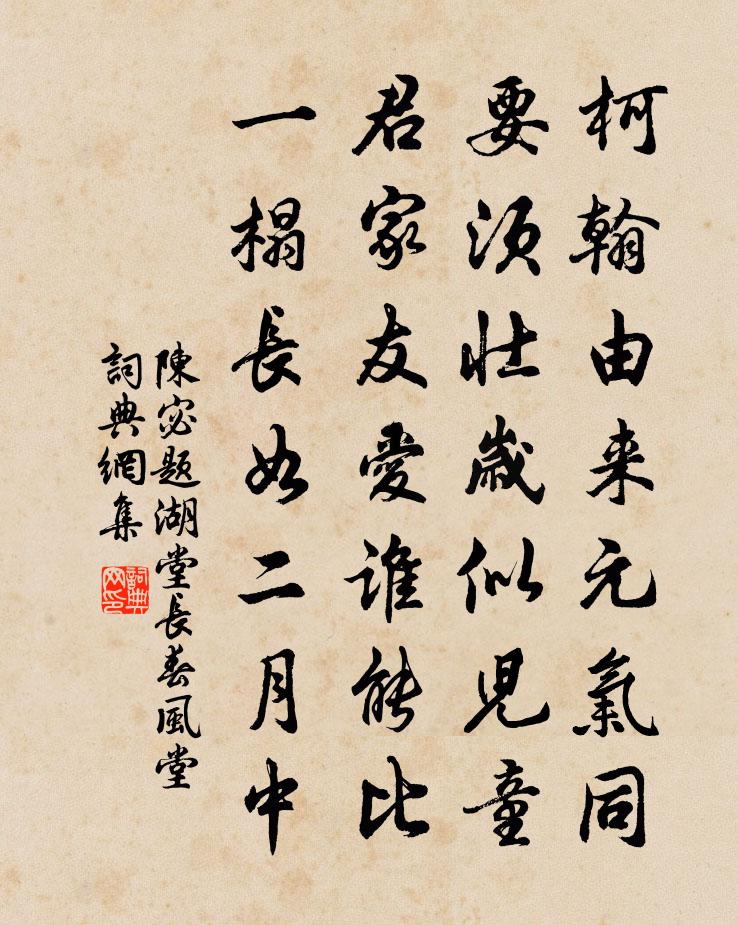 柯翰由来元氣同
要須壯歲似兒童
君家友愛誰能比
一榻長如二月中
陳宓題湖堂長春風堂
詞典網集
詞典
网印